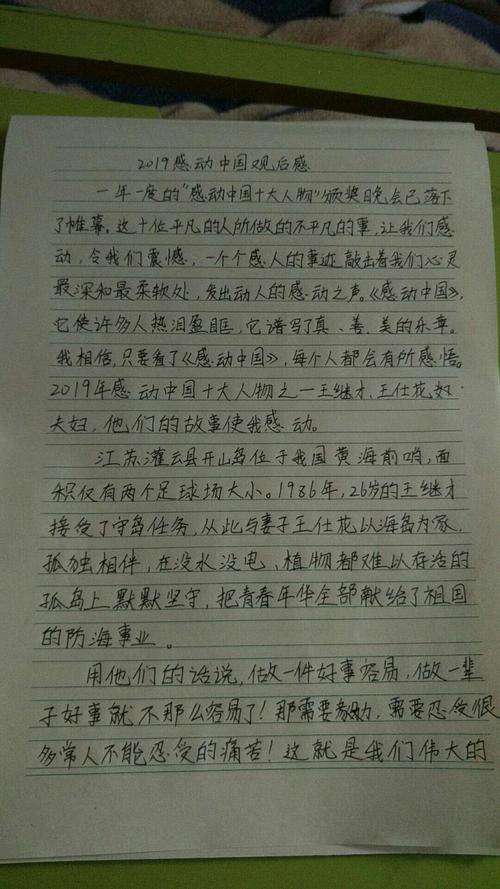 2019感动中国观后感
一年一度的"感动中国十大人物"颁奖晚会已落下
了帷幕。这十位平凡的人所做的不平凡的事,让我们感
动,令我们震憾,一个个感人的事迹敲击着我们心灵
最深和最柔软处,发出动人的感动之声。《感动中国》,
它使许多人热泪盈眶,它谱写了真、善、美的乐章。
我相信,只要看了《感动中国》,每个人都会有所感悟。
2019年感动中国十大人物之一王继才、王仕花
夫妇,他们的故事使我感动。
江苏灌云县开山岛位于我国黄海前哨,面
积仅有两个足球场大小。1986年,26岁的王继才
接受了守岛任务,从此与妻子王仕花以海岛为家,
孤独相伴,在没水没电、植物都难以存活的
孤岛上默默坚守,把青春年华全部献给了祖国
的防海事业。
用他们的话说,做一件好事容易,做一辈
子好事就不那么容易了!那需要,需要忍受很
多常人不能忍受的痛苦!这就是我们伟大的